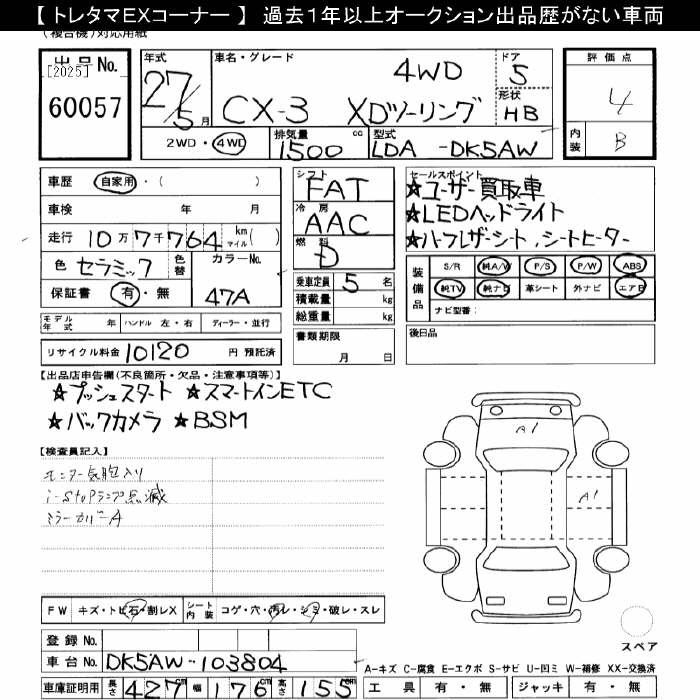 【トレタマEXコーナー】 過去1年以上オークション出品歴がない車両
(複合機)対応用紙
出品No.
[2025]
60057
年式
27/5月
車名・グレード
4WD
CX-3 XDツーリング
ドア
5
形状
HB
2WD・4WD
排気量
1500cc
型式
LDA -DK5AW
評価点
4
内装
B
車歴 自家用・( )
車検 年 月
走行 10万7千764 km マイル( )
色 セラミック 色替
カラーNo.
47A
保証書 有・無
モデル年式 年 ハンドル 左・右 ディーラー・並行
リサイクル料金 10120 円 預託済
シフト
FAT
冷房
AAC
燃料
D
乗車定員 5 名
積載量 kg
総重量 kg
書類期限
月 日
セールスポイント
☆ユーザー買取車
☆LEDヘッドライト
☆ハーフレザーシート,シートヒーター
装備品
S/R 純A/V P/S P/W ABS
純TV 純ナビ 革シート 外ナビ エアB
ナビ型番:
後日品
【出品店申告欄(不良箇所・欠品・注意事項等)】
☆プッシュスタート ☆スマートインETC
☆バックカメラ ☆BSM
【検査員記入】
モニター気胞入り
i-stopランプ点滅
ミラーカバーA
A1
A1
FW キズ・トビ石・割レX
シート内装 コゲ・穴・汚レ・シミ・破レ・スレ
登録No.
車台No. DK5AW-103804
車庫証明用 長さ 427cm 幅 176cm 高さ 155cm
スペア
A-キズ C-腐食 E-エクボ S-サビ U-凹ミ W-補修 XX-交換済
工具 有・無 ジャッキ 有・無